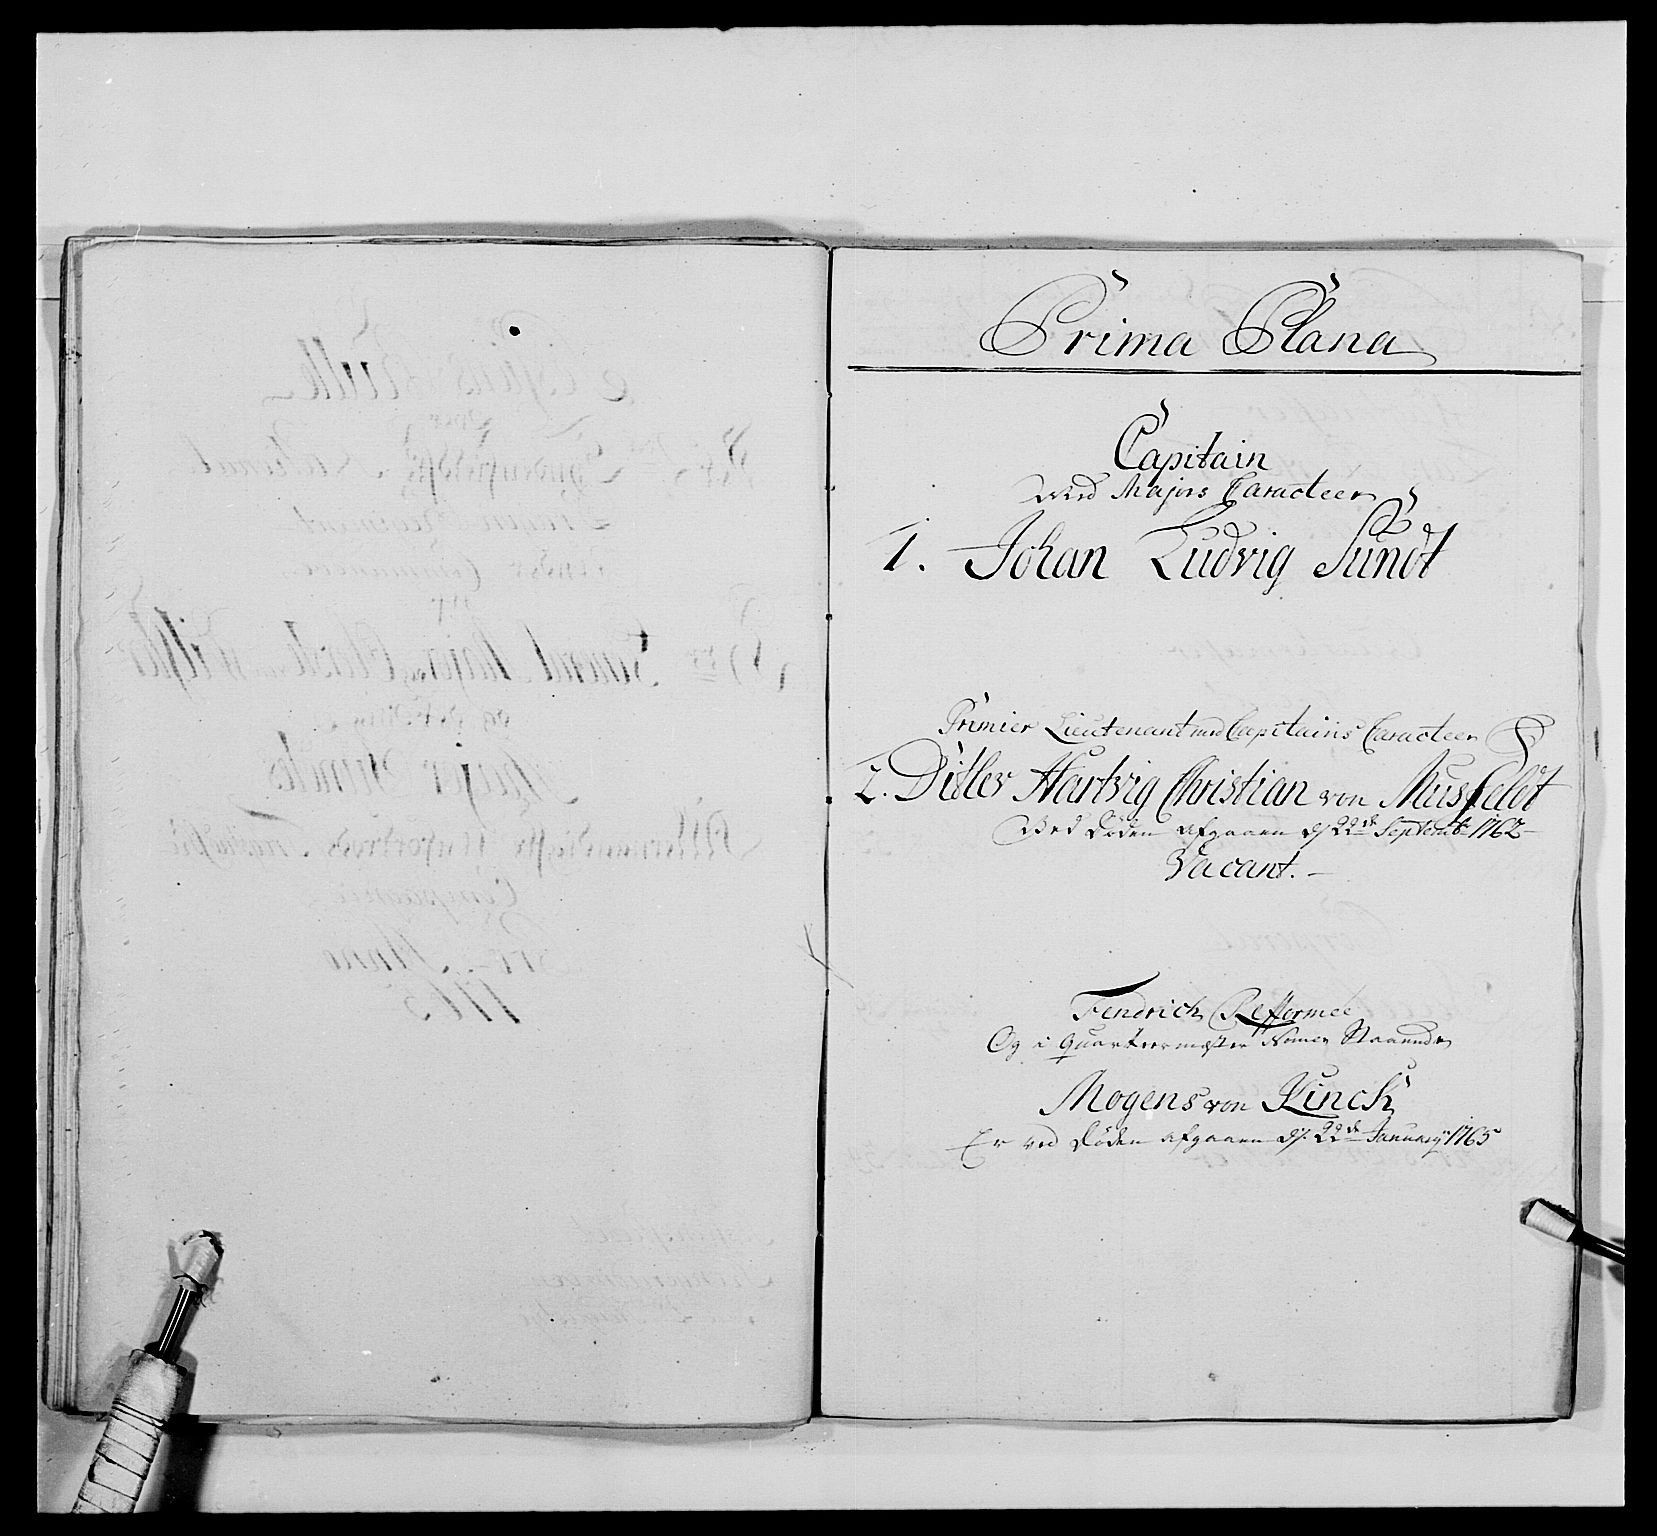 Prima Plana
Capitain
Med Majors Caracteer
1. Johan Ludvig Sundt
Primier Lieutenant med Capitains Caracteer
2. Ditlev Hartvig Christian von Musfeldt
Ved Døden afgaaen d/ 22de Septembr 1762
Vacant.
Fendrich Refformeé
Og i Quarteermester Numer Staaende
Mogens von Kinck
Er ved Døden afgaaen d/: 22de January 1765